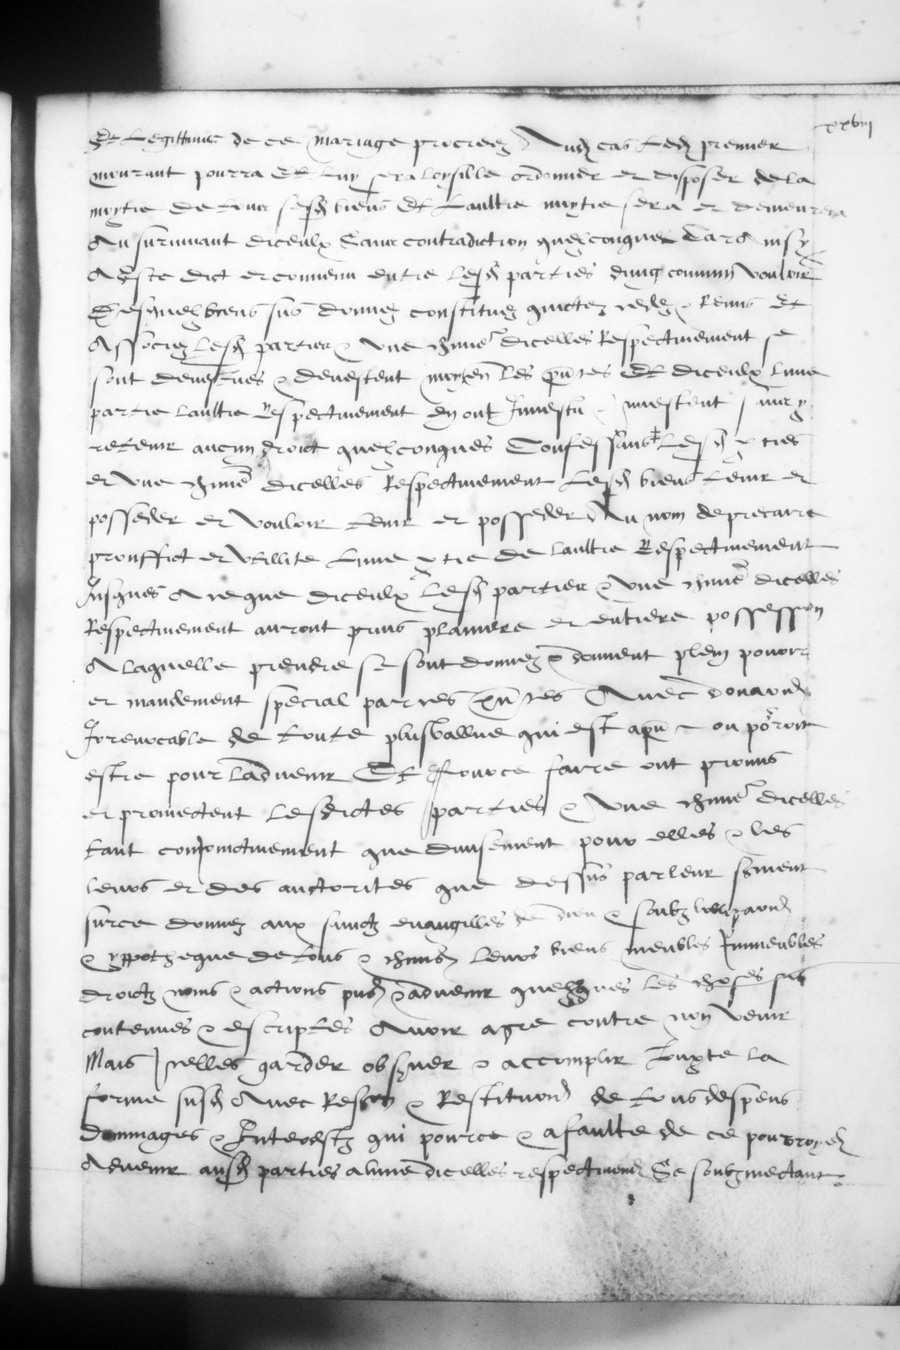 xxviii
Et legittime de ce mariage procreez Aud cas led premier
mourant pourra Et luy sera loysille ordonner et disposer de la
moytie de tous sesd biens Et laultre moytie sera et demeurera
Au survivant diceulx sans contradiction quelconque Car Ainsy
A este dict et convenu entre lesd parties dung commun vouloir
Desquelz biens sus donnez constituez quictez cedez & Remis Et
Associez lesd parties & une chune dicelles Respectivement se
sont demis & devestent moyen les pntes Et diceulx lune
partie laultre Respectivement en ont Investu & investent sans y
retenir aucun droict quelzconques Confes sans lesd pties
et une chune dicelles Respectivement lesd biens tenir et
posseder et vouloir tenir et posseder Au nom de precaire
prouffict et utillite lune ptie de laultre Respectivement
Jusques A ce que diceulx lesd parties & une chune dicelles
Respectivement auront prins planiere et entiere possession
A laquelle prendre se sont donnez & donnent plein povoir
et mandement special par ces pntes Avec donaon
Irrevocable de toute plusvallue qui est apnt ou pourroit
estre pour ladvenir Et ce faire ont promis
et promectent Lesdictes parties & une chune dicelles
tant conjoinctivement que divisement pour elles & les
leurs et des auctorites que dessus par leur serment
sur ce donnez aux sainctz evangilles de dieu & soubz lobligaon
& ypotheque de tous & chuns leurs biens meubles Immeubles
droictz noms & actions pns & advenir quelzques les choses sus
contenues & escriptes Avoir agre contre non venir
Mais Icelles garder observer & accomplir Juxte la
forme susd Avec Reson & Restituon de tous despens
dommages & Interestz qui pource & a faulte de ce pourroyent
Advenir ausd parties a lune dicelles respectivement Se soubzmectant